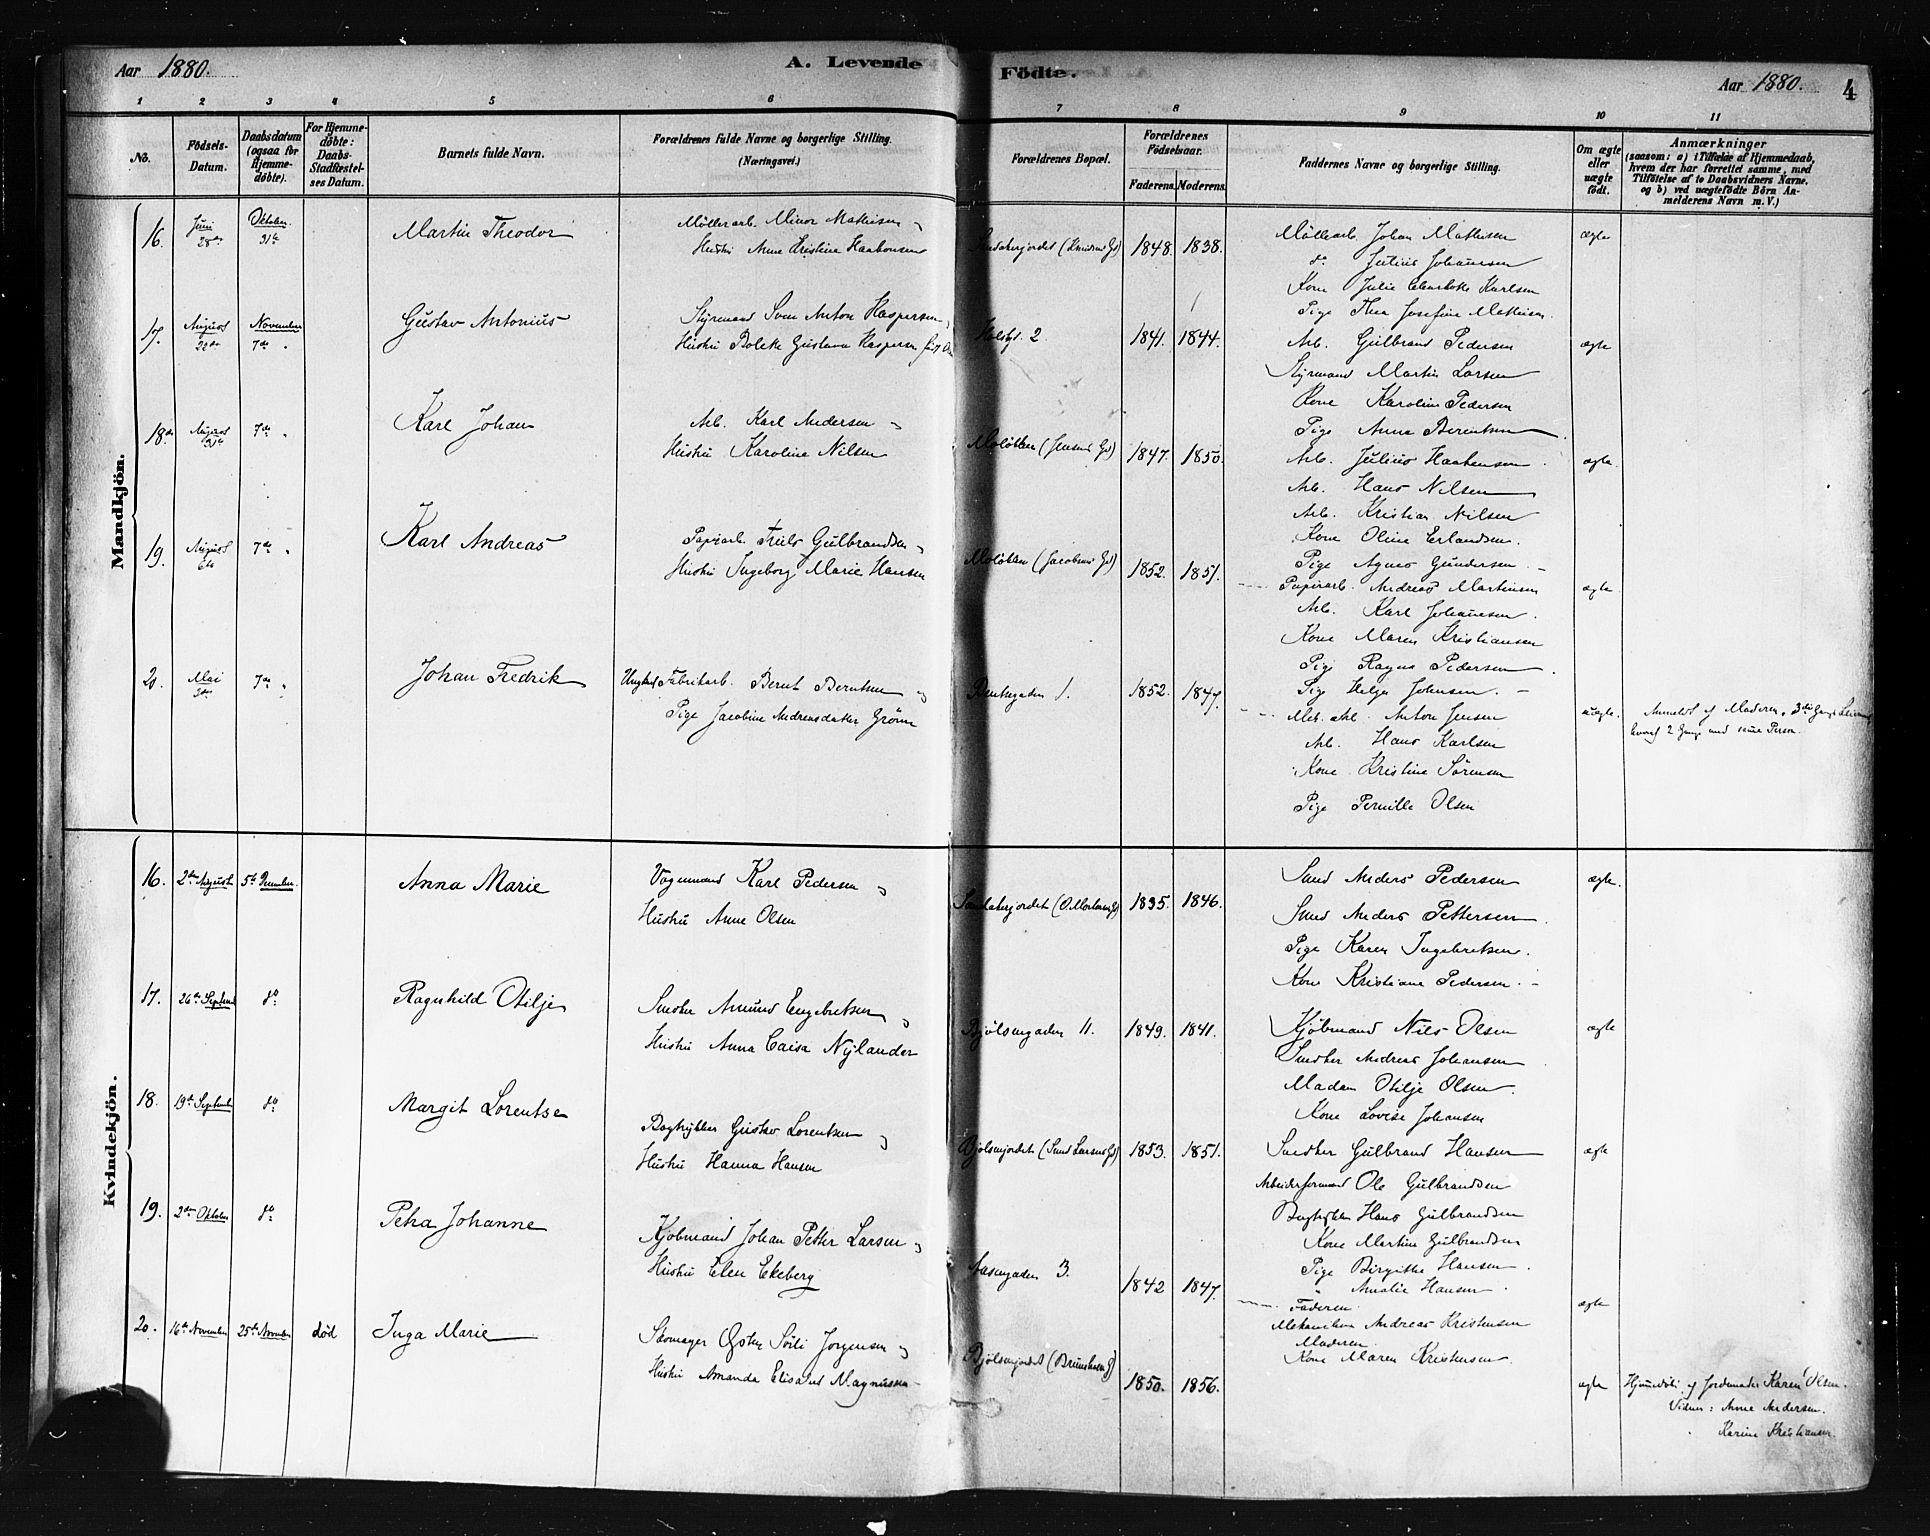 Aar 1880.
A. Levende
Födte.
Aar 1880.
4
1 2 3 4 5 6 7 8 9 10 11
No.
Födsels-Datum.
Daabsdatum (ogsaa for Hjemme-døbte).
For Hjemme-døbte: Daabs-Stadfæstel-ses Datum.
Barnets fulde Navn.
Forældrenes fulde Navne og borgerlige Stilling.
(Næringsvei.)
Forældrenes Bopæl.
Forældrenes Födselsaar.
Faderens. Moderens.
Faddernes Navne og borgerlige Stilling.
Om ægte eller uægte födt.
Anmærkninger
(saasom: a) i Tilfælde af Hjemmedaab,
hvem der har forrettet samme, med
Tilföielse af to Daabsvidners Navne,
og b) ved uægtefödte Börn An-
melderens Navn m. V.)
Mandkjön.
16. Juni 28de Oktober 31te Martin Theodor
Möllerarb. Minor Mathisen
Hustru Anne Kristine Haakonsen
1848. 1838.
Möllearb. Johan Mathisen ægte
do Julius Johansen
Kone Julie Charlotte Karlsen
Pige Thea Josefine Mathisen
17. August 22de November 7de Gustav Antonius
Styrmand Sven Anton Kaspersen
Hustru Bolette Gustava Kaspersen
2 1841. 1844.
Arb. Gulbrand Pedersen ægte
Styrmand Martin Larsen
Kone Karoline Pedersen
Pige Anna Berentsen
18de August 7de Karl Johan
Arb. Karl Andersen
Hustru Karoline Nilsen
Moløkken (Jensens Gd) 1847. 1850.
Arb. Julius Haakensen ægte
Arb. Hans Nilsen
Arb. Kristian Nilsen
Kone Oline Erlandsen.
Pige Agnes Gundersen
19. August 6te 7de Karl Andreas
Papirarb. Truls Gulbrandsen
Hustru Ingeborg Marie Hansen
Moløkken (Jacobsens Gd) 1852. 1851.
Papirarb. Andreas Martinsen ægte
Arb. Karl Johansen.
Kone Maren Kristiansen
Pige Ragna Pedersen
Pige Helga Johnsen.
20. Mai 3de 7de Johan Fredrik
Ungkarl Fabrikarb. Bernt Berntsen
Pige Jacobine Andreasdatter Grönn
Bentsegaden 1. 1852. 1847.
Mek. Arb. Anton Jensen uægte.
Arb. Hans Karlsen
Kone Kristine Sörensen
Pige Pernille Olsen
Anmeldt af Moderen, 3die Gangs
hvoraf 2 Gange med samme Person.
Kvindekjön.
16. 2den August 5te December. Anna Marie
Vognmand Karl Pedersen
Hustru Anne Olsen
Sandakerjordet 1835. 1846.
Smed Anders Pedersen ægte.
Smed Anders Pettersen
Pige Karen Ingebretsen.
Kone Kristiane Pedersen.
17. 26de Septemb do Ragnhild Otilje
Snedker Amund Engebretsen
Hustru Anna Caisa Nylander
Bjølsengaden 11. 1849. 1841.
Kjöbmand Nils Olsen ægte
Snedker Andreas Johansen
Madam Otilje Olsen.
Kone Lovise Johansen
18. 19de September do Margit Lorentse
Bogtrykker Gustav Lorentsen
Hustru Hanna Hansen
Bjølsenjordet (Smed Larsens Gd) 1853. 1851.
Snedker Gulbrand Hansen ægte
Arbeidsformand Ole Gulbrandsen
Bogtrykker Hans Gulbrandsen
Kone Martine Gulbrandsen
Pige Birgithe Hansen.
" Amalie Hansen.
19. 2den Oktober do Petra Johanne
Kjöbmand Johan Petter Larsen
Hustru Elen Ekeberg
Aasengaden 3. 1842 1847.
Faderen. ægte
Mekaniker Andreas Kristensen
Moderen
Kone Maren Kristensen.
20. 16de November 25de November död Inga Marie
Skomager Jørgensen
Hustru Amanda Elisabet Magnussen
Bjølsenjordet 1850. 1856.
ægte Hjemmedöbt af Jordemoder Karen Olsen.
Vidner: Anne Andersen.
Karine Kristiansen.